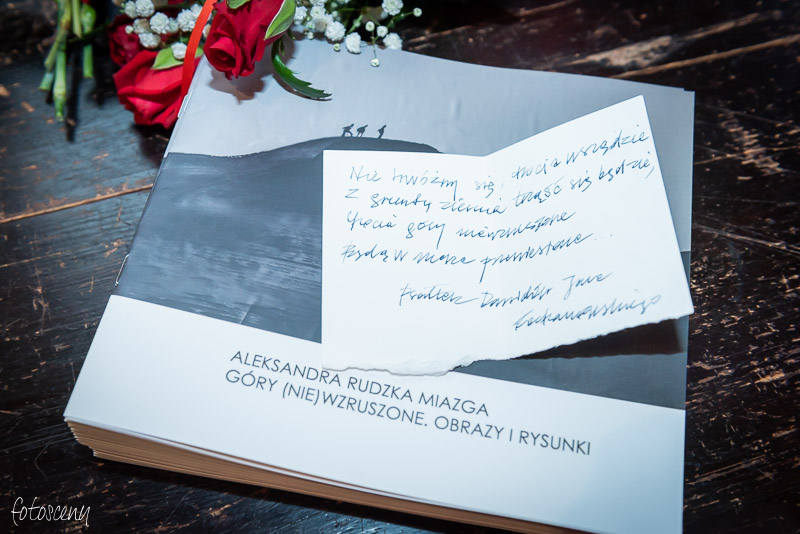 Nie trwóżmy się, chocia wszędzie
Z gruntu ziemia trząść się będzie,
Chocia góry niewzruszone
Będą w morze przeniesione...
Psałterz Dawidów Jana
Kochanowskiego
ALEKSANDRA RUDZKA MIAZGA
GÓRY (NIE)WZRUSZONE. OBRAZY I RYSUNKI
fotosceny